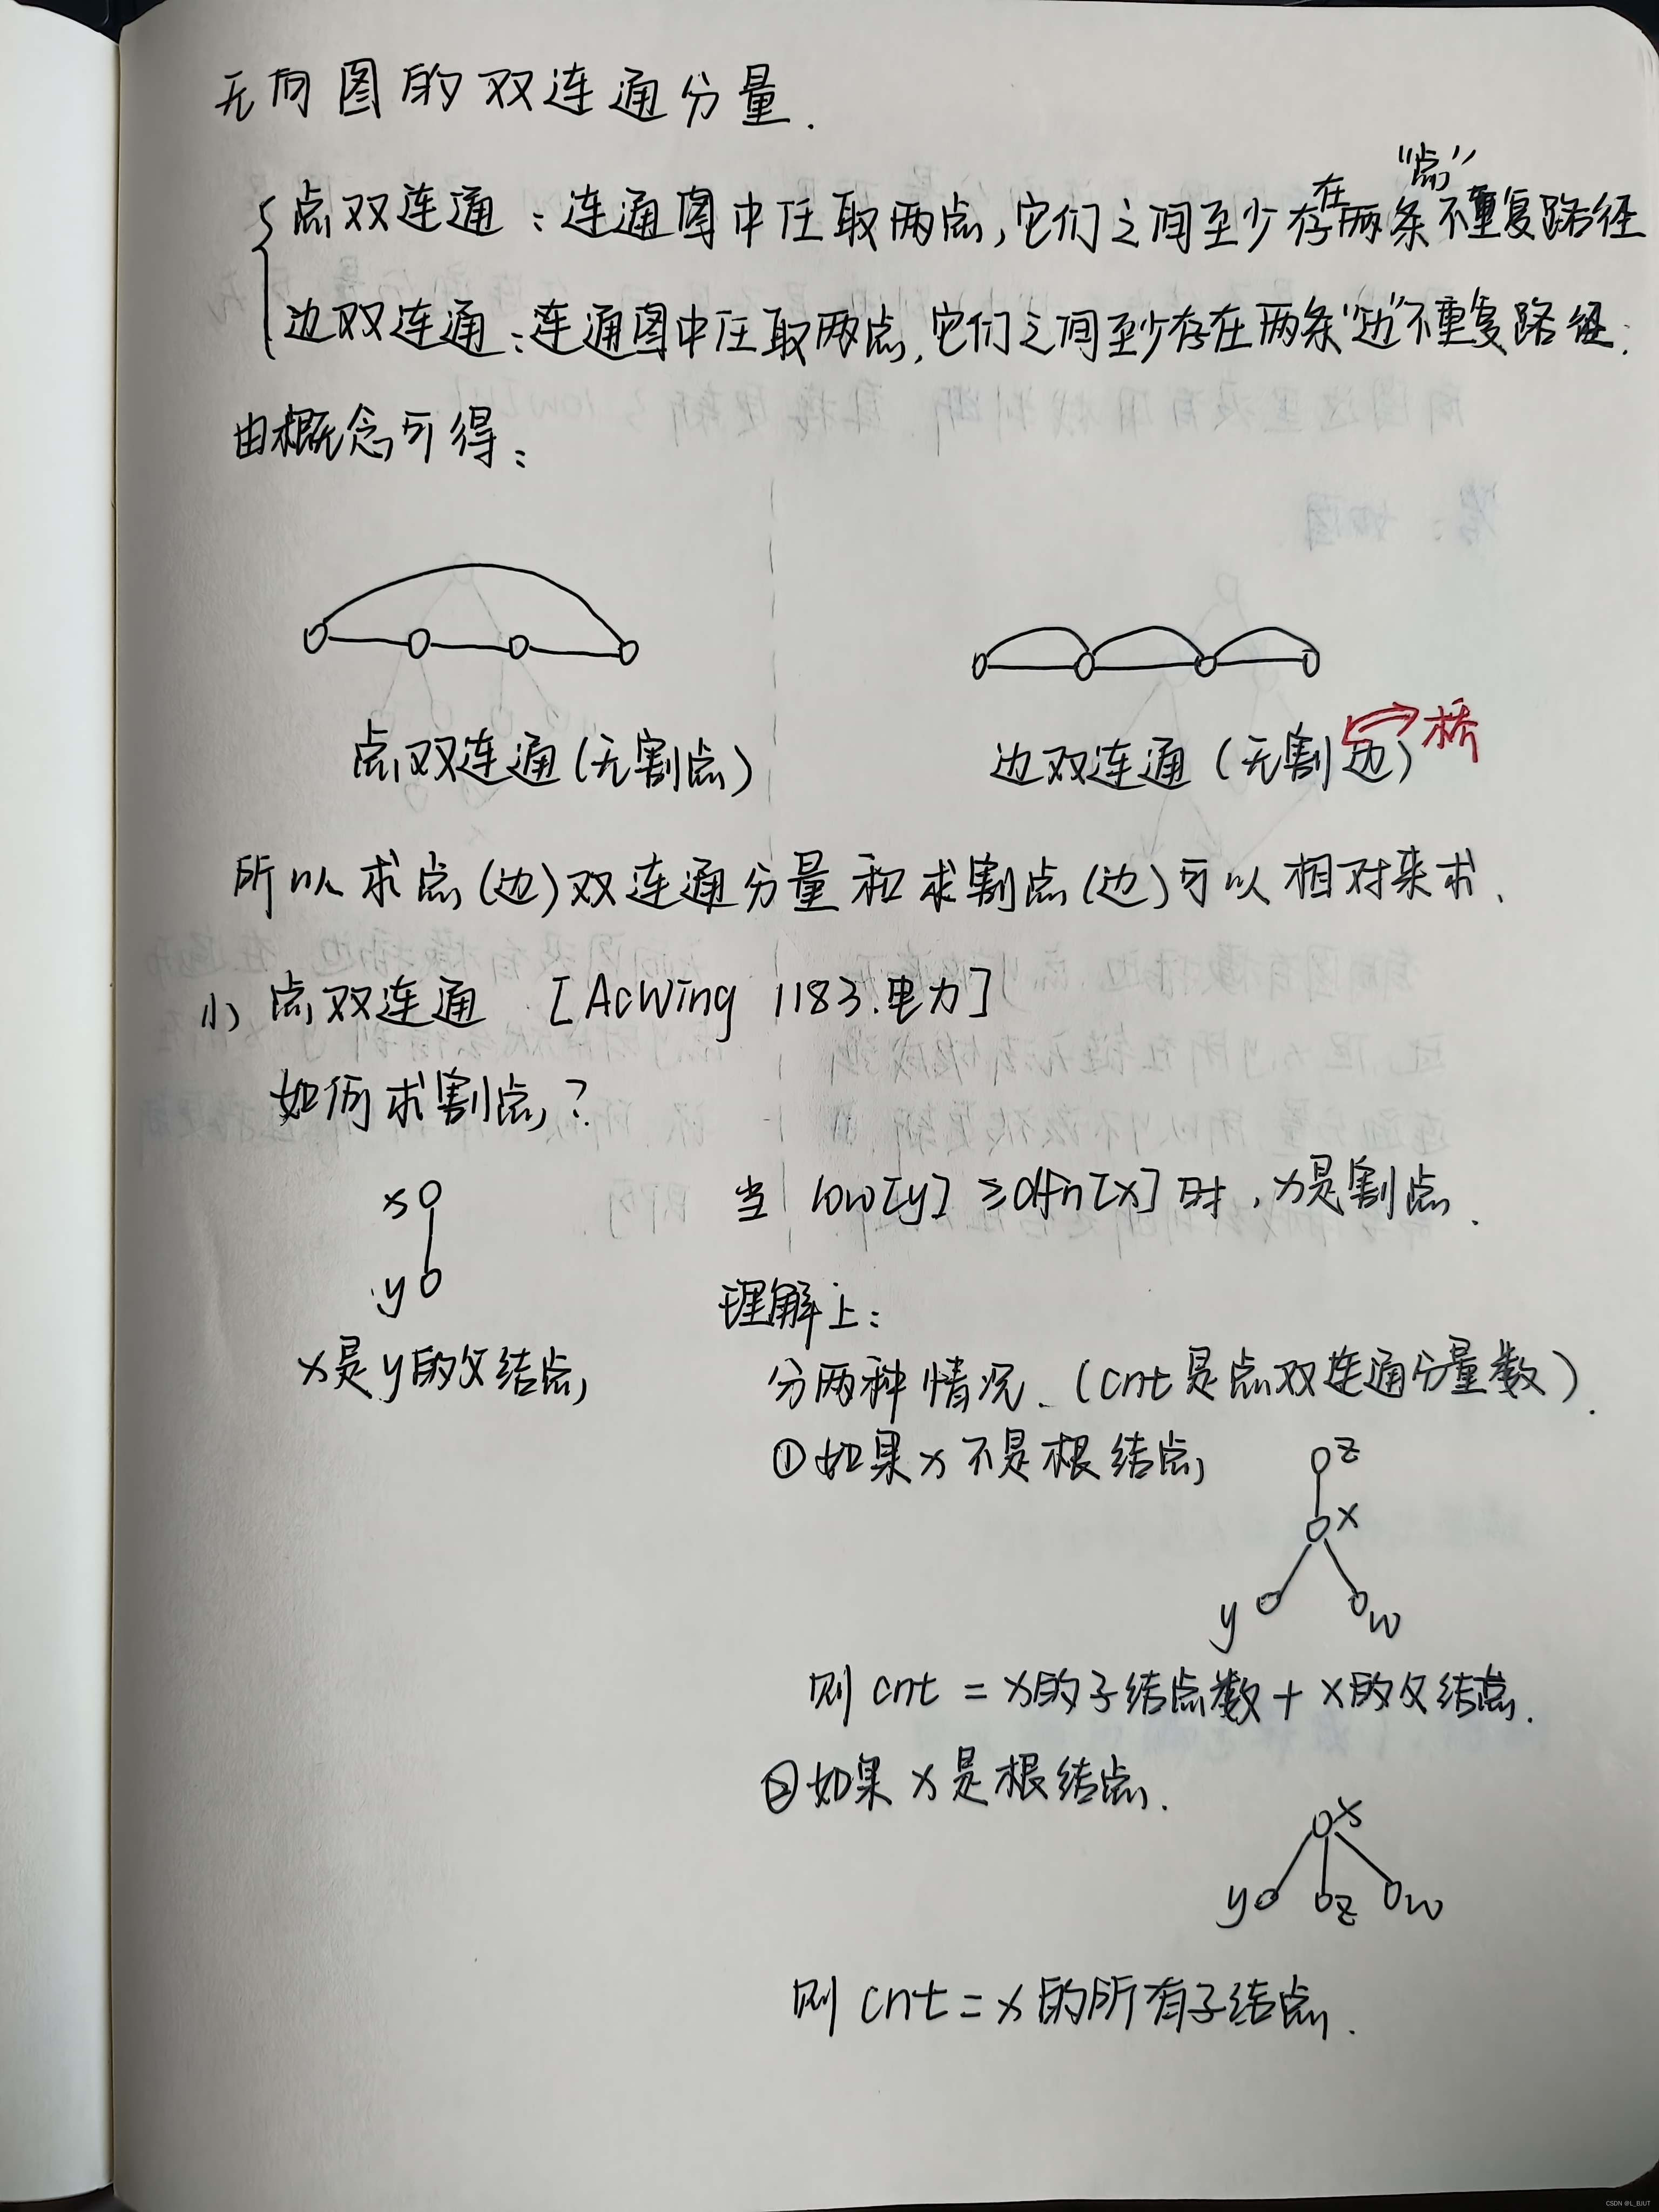 无向图的双连通分量.
点双连通：连通图中任取两点,它们之间至少存在两条"点"不重复路径
边双连通：连通图中任取两点,它们之间至少存在两条"边"不重复路径.
由概念可得：
点双连通(无割点)
边双连通(无割边) 桥
所以求点(边)双连通分量和求割点(边)可以相对来求.
(1) 点双连通 [AcWing 1183.电力]
如何求割点?
x
y
x是y的父结点
当 low[y] ≥ dfn[x] 时, x是割点.
理解上：
分两种情况.(cnt是点双连通分量数).
①如果x不是根结点
z
x
y
w
则 cnt = x的子结点数 + x的父结点.
②如果x是根结点.
x
y z w
则 cnt = x的所有子结点.
CSDN @L_BJUT